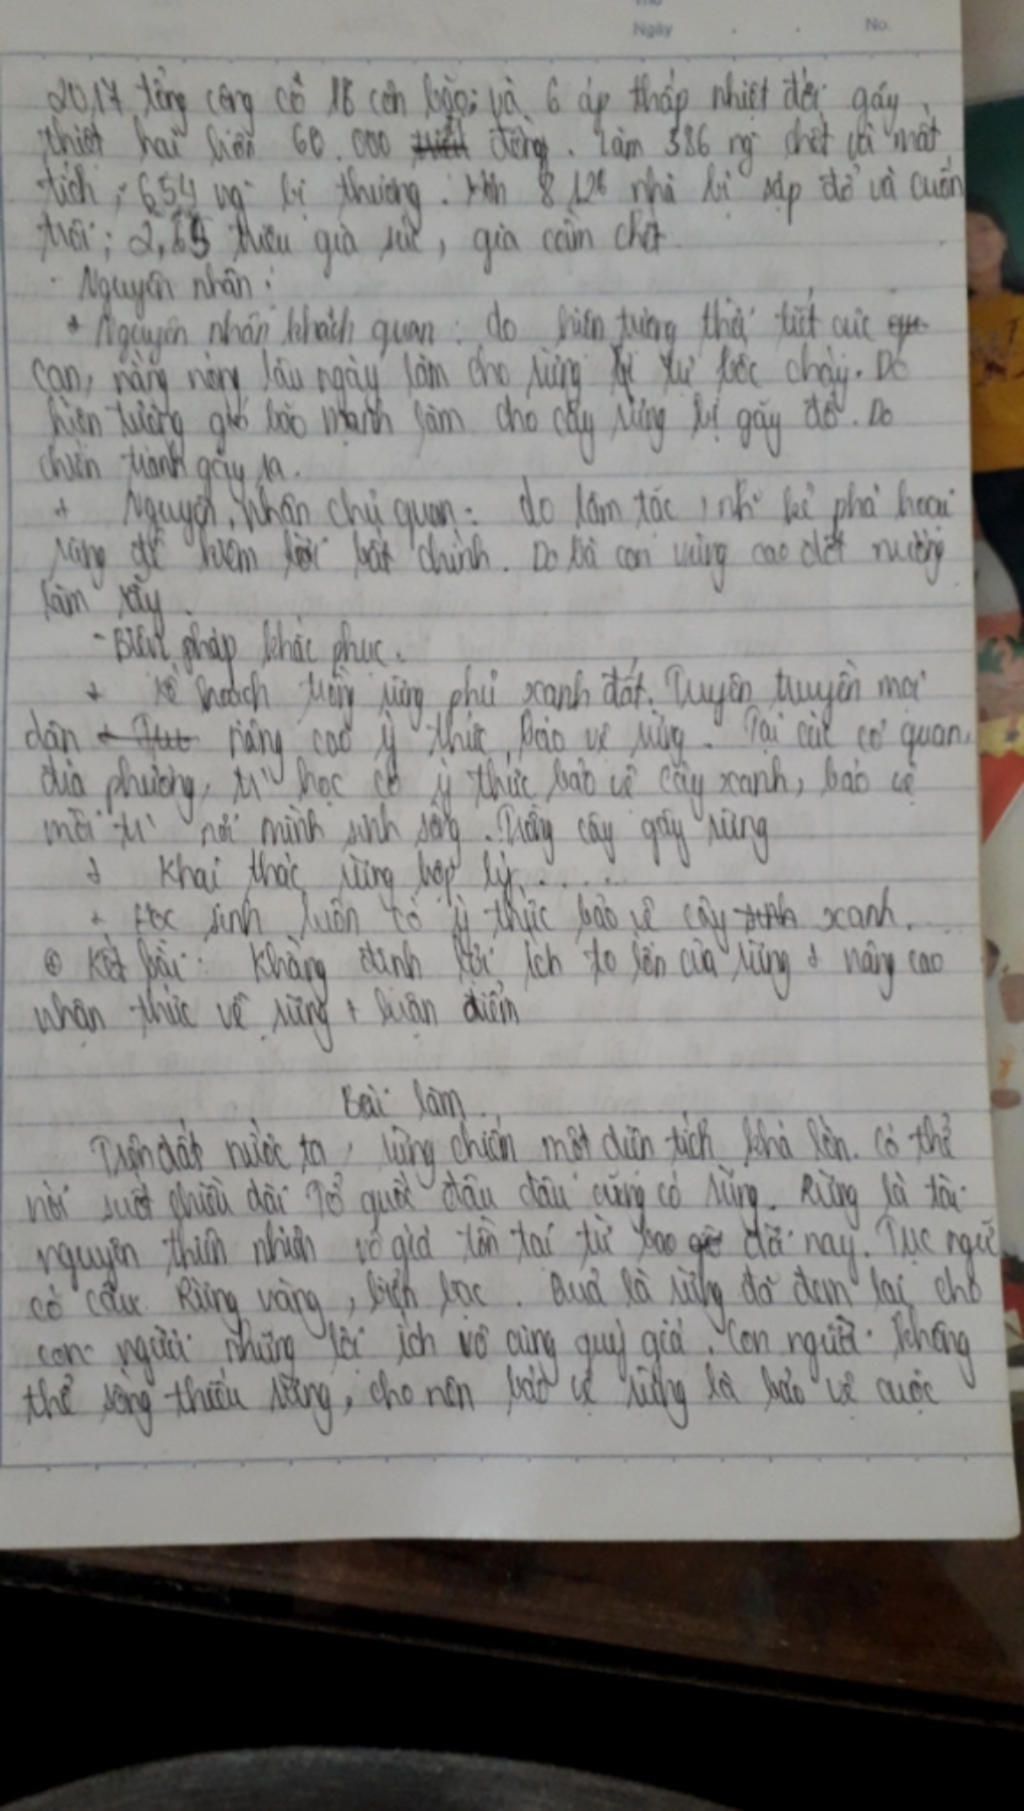 Ngày No.
2017 tổng cộng có 16 cơn bão; và 6 áp thấp nhiệt đới gây
thiệt hại hơn 60.000 đồng. Làm 386 ng chết và mất
tích; 654 ng bị thương. Hơn 8 126 nhà bị sập đổ và cuốn
trôi; triệu gia súc, gia cầm chết
- Nguyên nhân:
+ Nguyên nhân khách quan: do hiện tượng thời tiết cực
cạn, nắng nóng lâu ngày làm cho rừng bị tự bốc cháy. Do
hiện tượng gió bão mạnh làm cho cây rừng bị gãy đổ. Do
chiến tranh gây ra.
+ Nguyên nhân chủ quan: do lâm tặc, kẻ phá hoại
rừng để kiếm lời bất chính. Do bà con vùng cao đốt nương
làm rẫy.
- Biện pháp khắc phục.
+ Kế hoạch trồng rừng phủ xanh đất. Tuyên truyền mọi
dân nâng cao ý thức bảo vệ rừng. Tại các cơ quan,
địa phương, tr học có ý thức bảo vệ cây xanh, bảo vệ
môi tr nơi mình sinh sống. Trồng cây gây rừng
+ Khai thác rừng hợp lý.....
+ Học sinh luôn có ý thức bảo vệ cây xanh.
Kết bài: Khẳng định lợi ích to lớn của rừng + nâng cao
nhận thức về rừng + luận điểm
Bài làm
Trên đất nước ta, rừng chiếm một diện tích khá lớn. Có thể
nói suốt chiều dài Tổ quốc đâu đâu cũng có rừng. Rừng là tài
nguyên thiên nhiên vô giá tồn tại từ bao đời nay. Tục ngữ
có câu: Rừng vàng, biển bạc. Quả là rừng đã đem lại cho
con người những lợi ích vô cùng quý giá. Con người không
thể sống thiếu rừng, cho nên bảo vệ rừng là bảo vệ cuộc